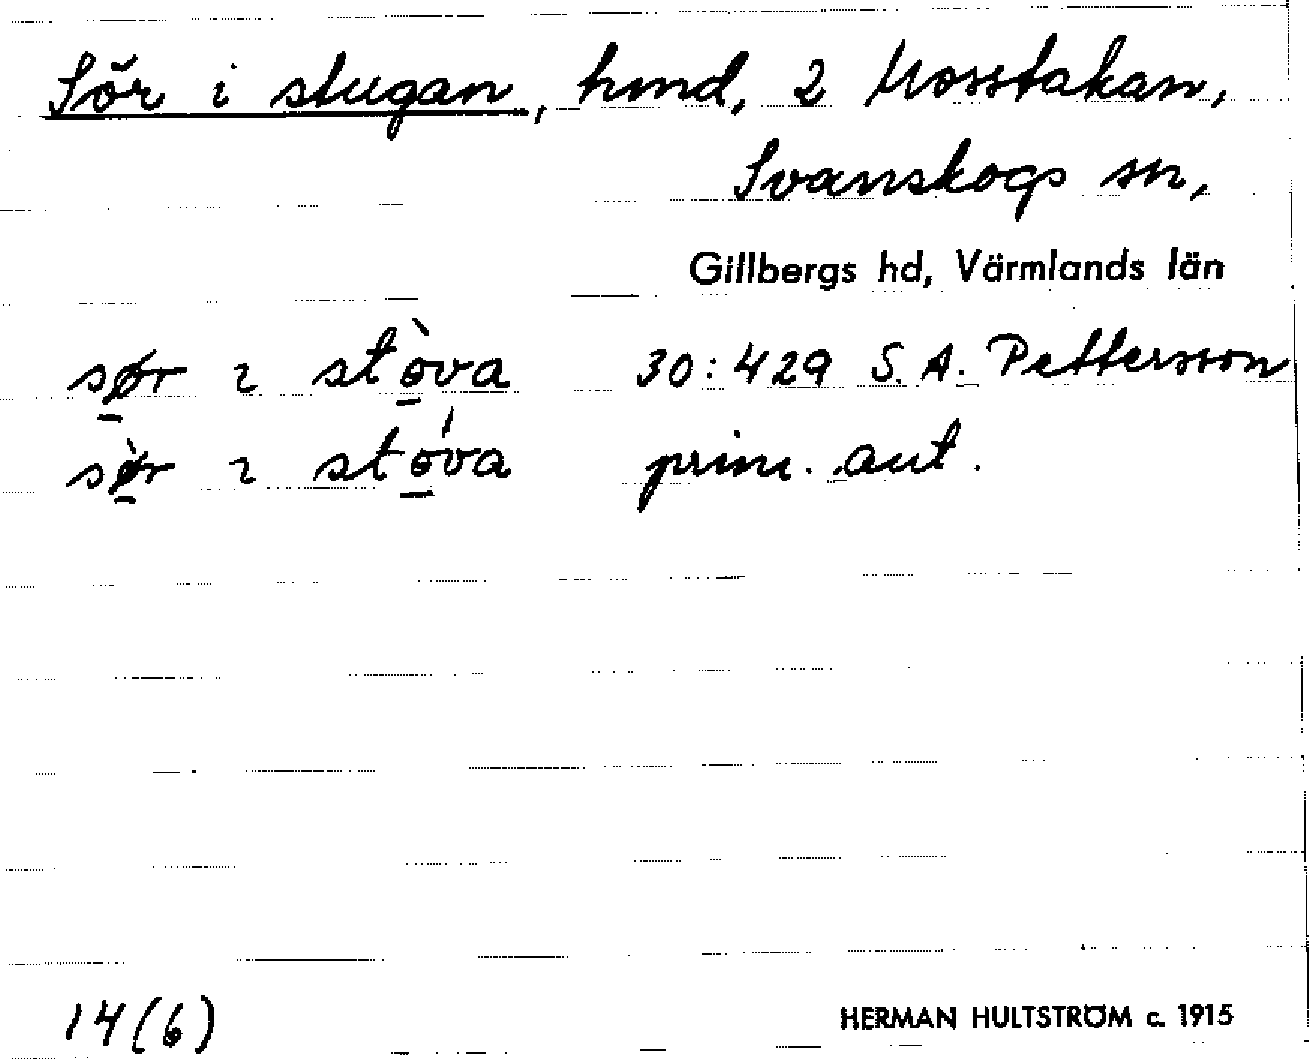 Sör i stugan, hmd, 2 Mosstakan,
Svanskogs sn,
Gillbergs hd, Värmlands län
sør ɩ stòva 30:429 S. A. Pettersson
sø̀r ɩ stóva prim. aut.
14(6) HERMAN HULTSTRÖM c. 1915